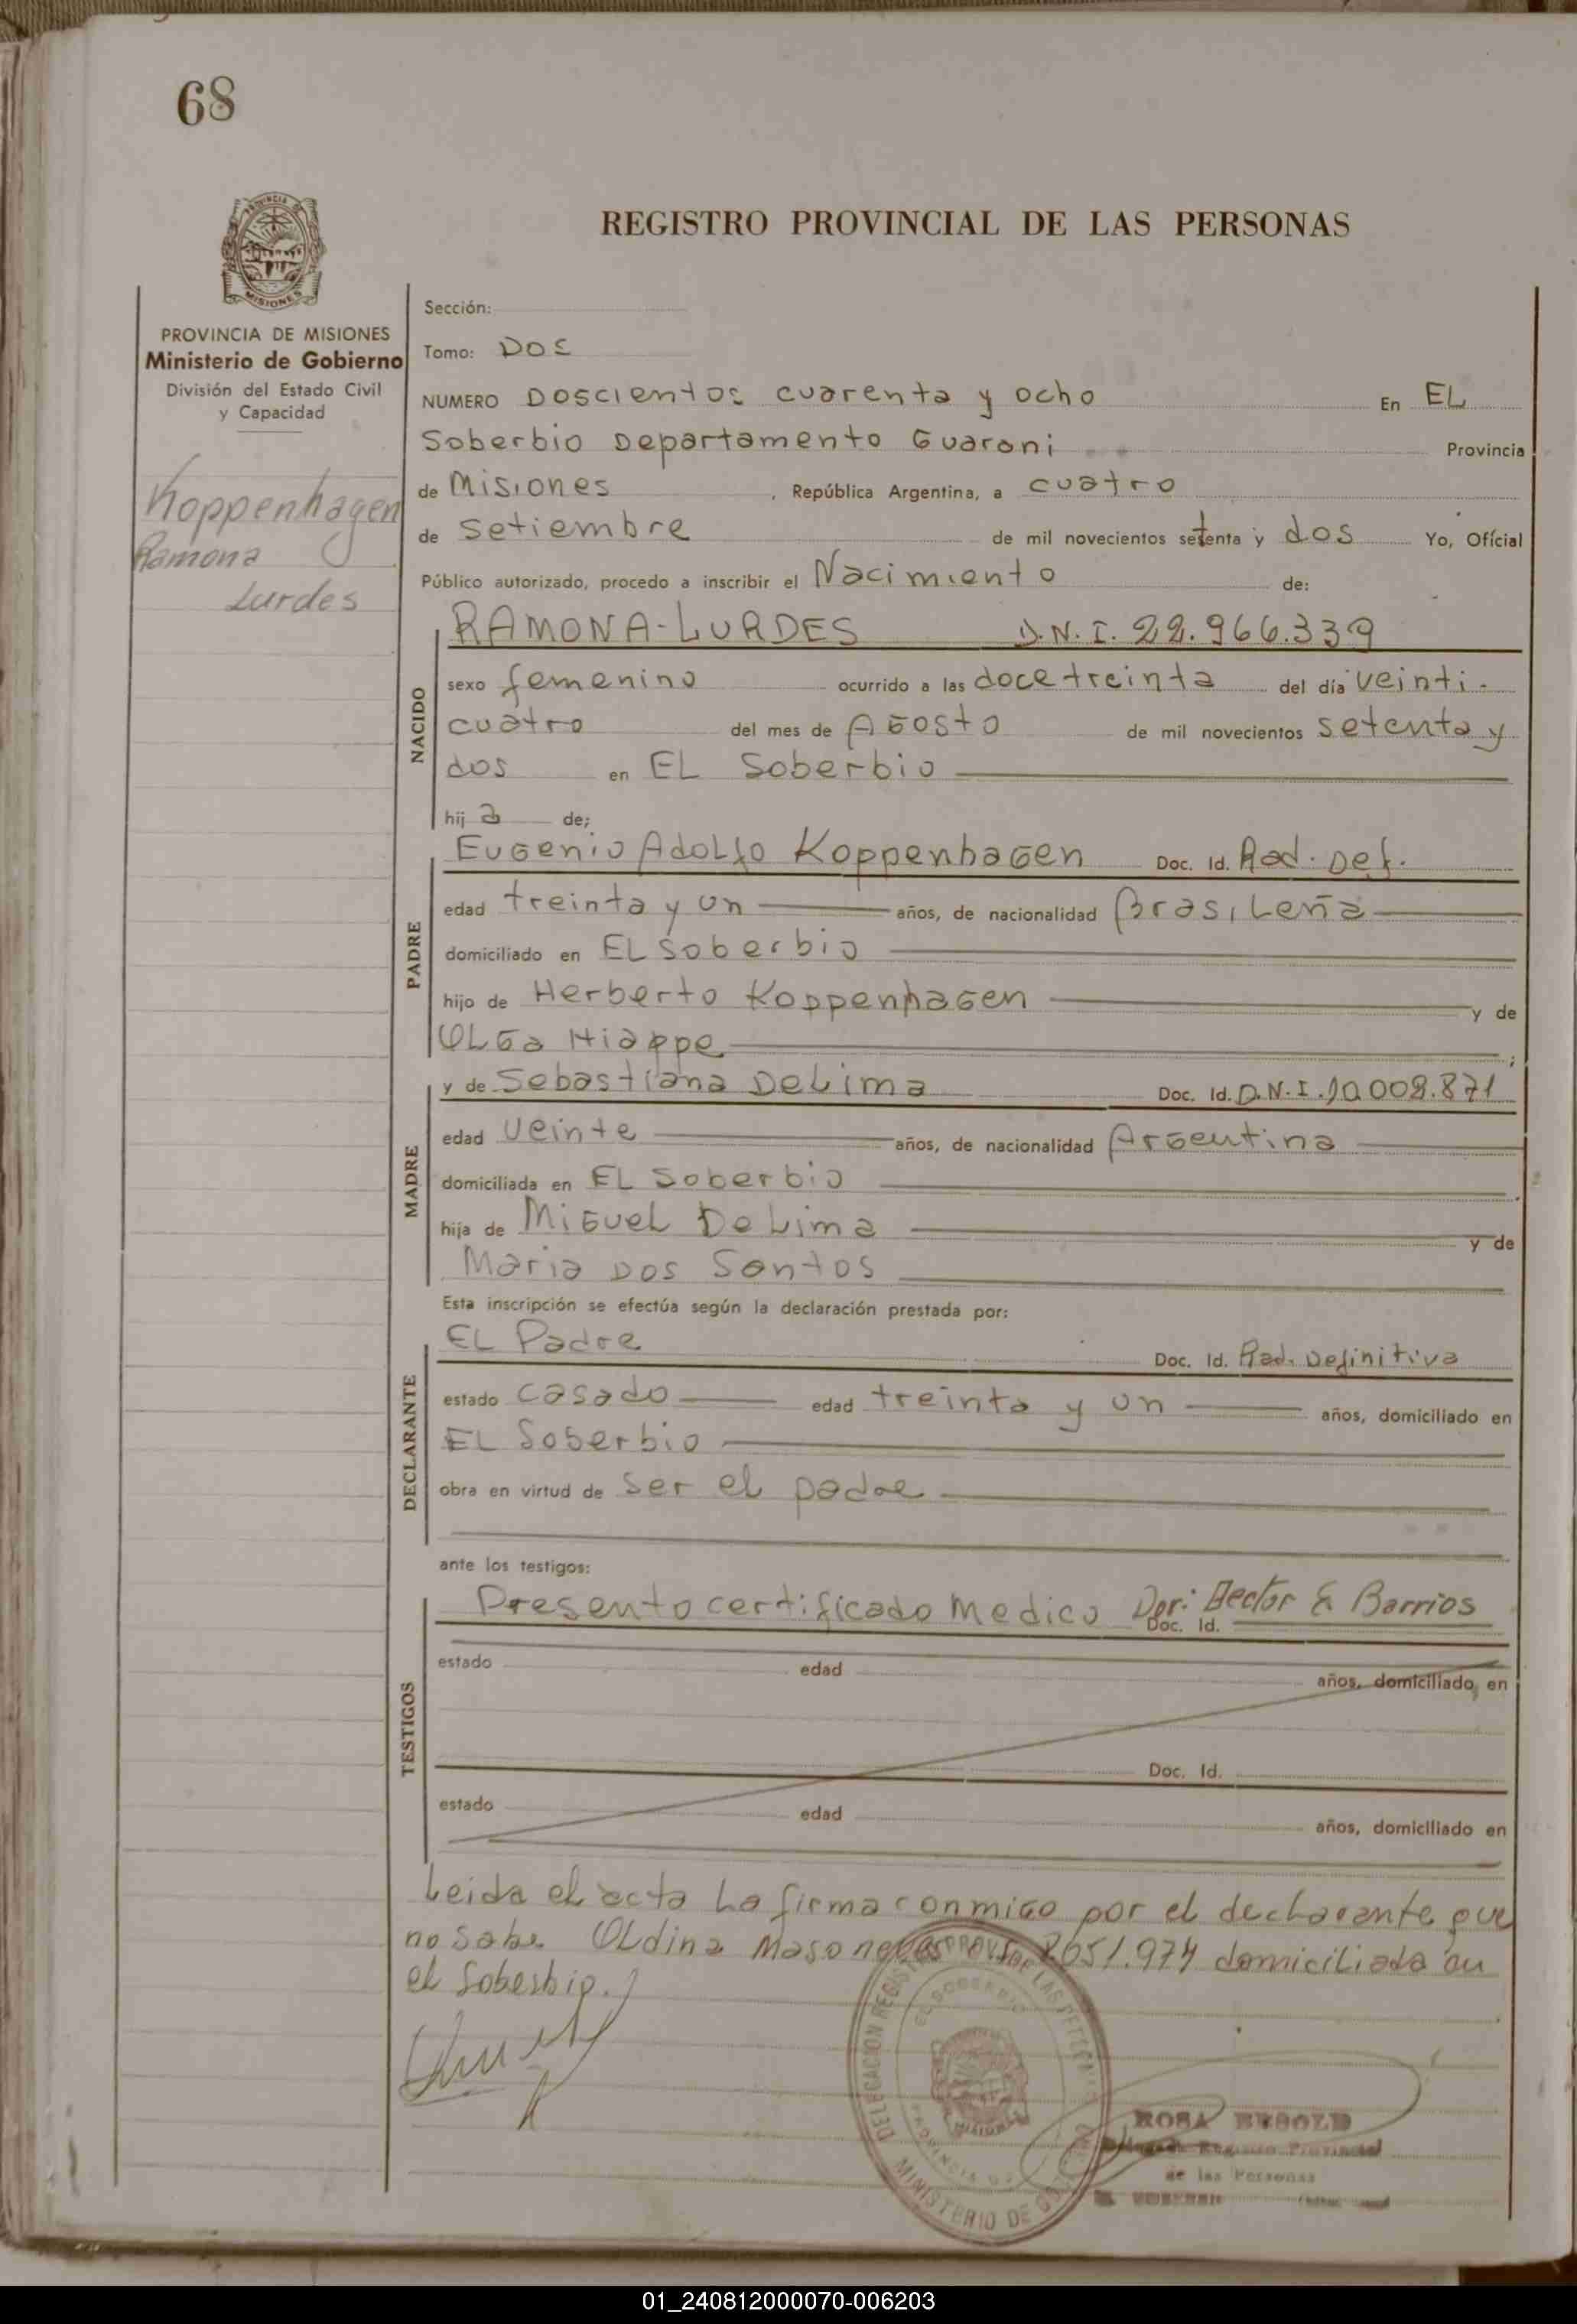 68
REGISTRO PROVINCIAL DE LAS PERSONAS
PROVINCIA DE MISIONES
Ministerio de Gobierno
División del Estado Civil
y Capacidad
Koppenhagen
Ramona
Lurdes
Sección:
Tomo: Dos
NUMERO Doscientos cuarenta y ocho En EL
Soberbio Departamento Guarani Provincia
de Misiones, República Argentina, a cuatro
de setiembre de mil novecientos setenta y dos Yo, Oficial
Público autorizado, procedo a inscribir el Nacimiento de:
NACIDO
RAMONA-LURDES D.N.I. 22.966.339
sexo femenino ocurrido a las doce treinta del día veinti-
cuatro del mes de Agosto de mil novecientos setenta y
dos en EL Soberbio
hij a de;
PADRE
Eugenio Adolfo Koppenhagen Doc. Id. Rad. Def.
edad treinta y un años, de nacionalidad Brasileña
domiciliado en EL Soberbio
hijo de Herberto Koppenhagen y de
Olga Hiappe;
MADRE
y de Sebastiana DeLima Doc. Id. D.N.I. 10.002.871
edad veinte años, de nacionalidad Argentina
domiciliada en EL Soberbio
hija de Miguel De Lima y de
Maria Dos Santos
Esta inscripción se efectúa según la declaración prestada por:
DECLARANTE
EL Padre Doc. Id. Rad. Definitiva
estado casado edad treinta y un años, domiciliado en
EL Soberbio
obra en virtud de ser el padre
ante los testigos:
TESTIGOS
Presento certificado Medico Por: Hector E Barrios
Doc. Id.
estado edad años, domiciliado en
Doc. Id.
estado edad años, domiciliado en
Leida el acta La firma conmigo por el declarante que
no sabe Oldina 2.051.974 domiciliada en
el Soberbio.
DELEGACION REGISTRO PROV. DE LAS PERSONAS
EL SOBERBIO
MISIONES
PROVINCIA DE
MINISTERIO DE GOBIERNO
ROSA BESOLD
Registro Provincial
de las Personas
01_240812000070-006203